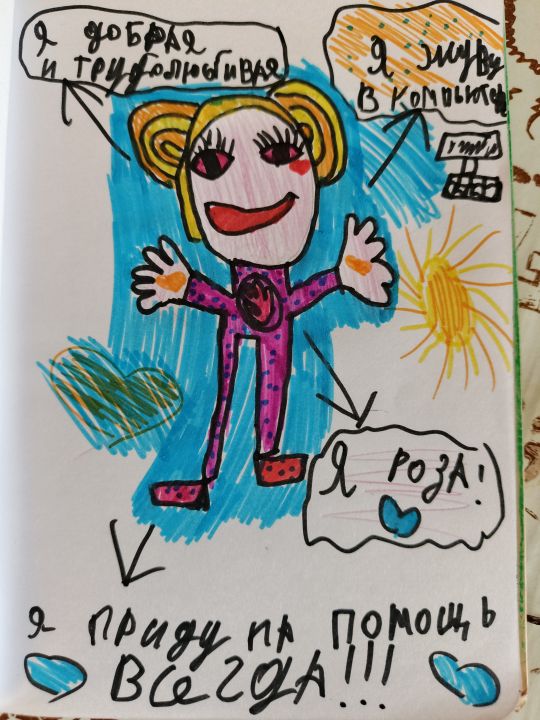 Я ДОБРАЯ
И ТРУДОЛЮБИВАЯ
Я ЖИВУ
В КОМПЬЮТЕРЕ
Я РОЗА!
Я ПРИДУ НА ПОМОЩЬ
ВСЕГДА!!!